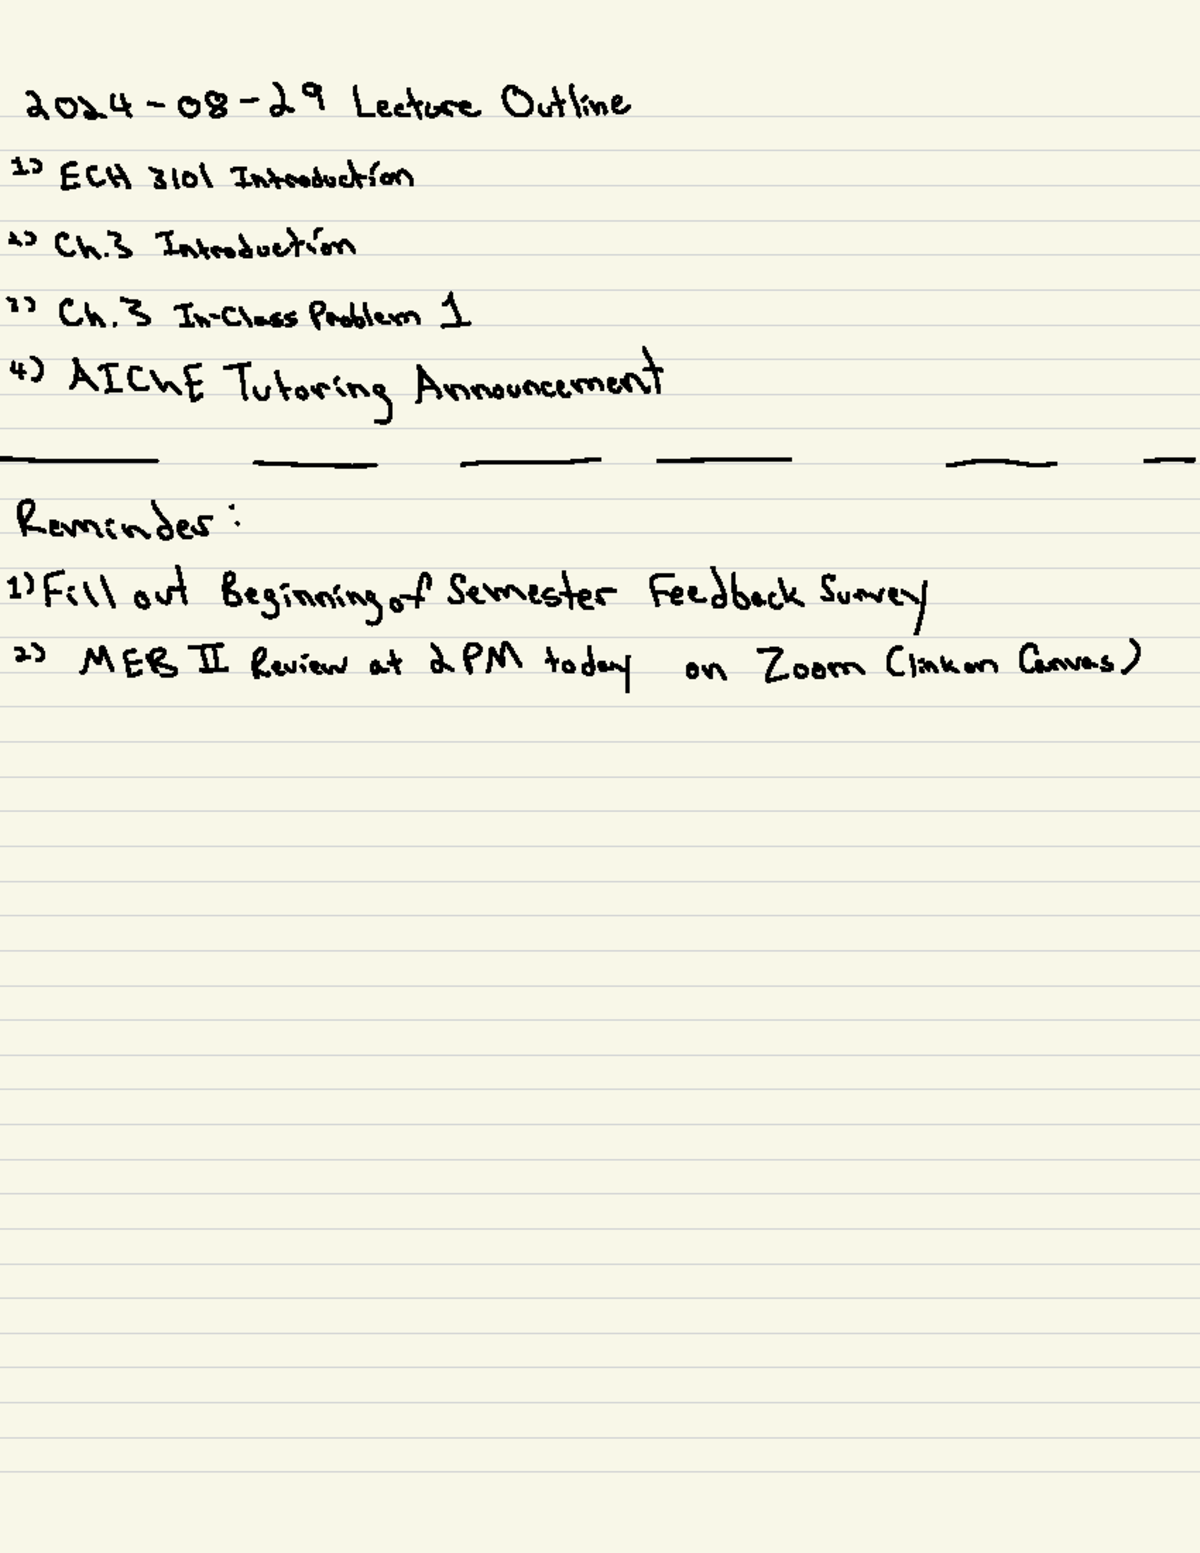 2024-08-29 Lecture Outline
1) ECH 3101 Introduction
2) Ch.3 Introduction
3) Ch.3 In-Class Problem 1
4) AIChE Tutoring Announcement
Reminder:
1) Fill out Beginning of Semester Feedback Survey
2) MEB II Review at 2PM today on Zoom (link on Canvas)